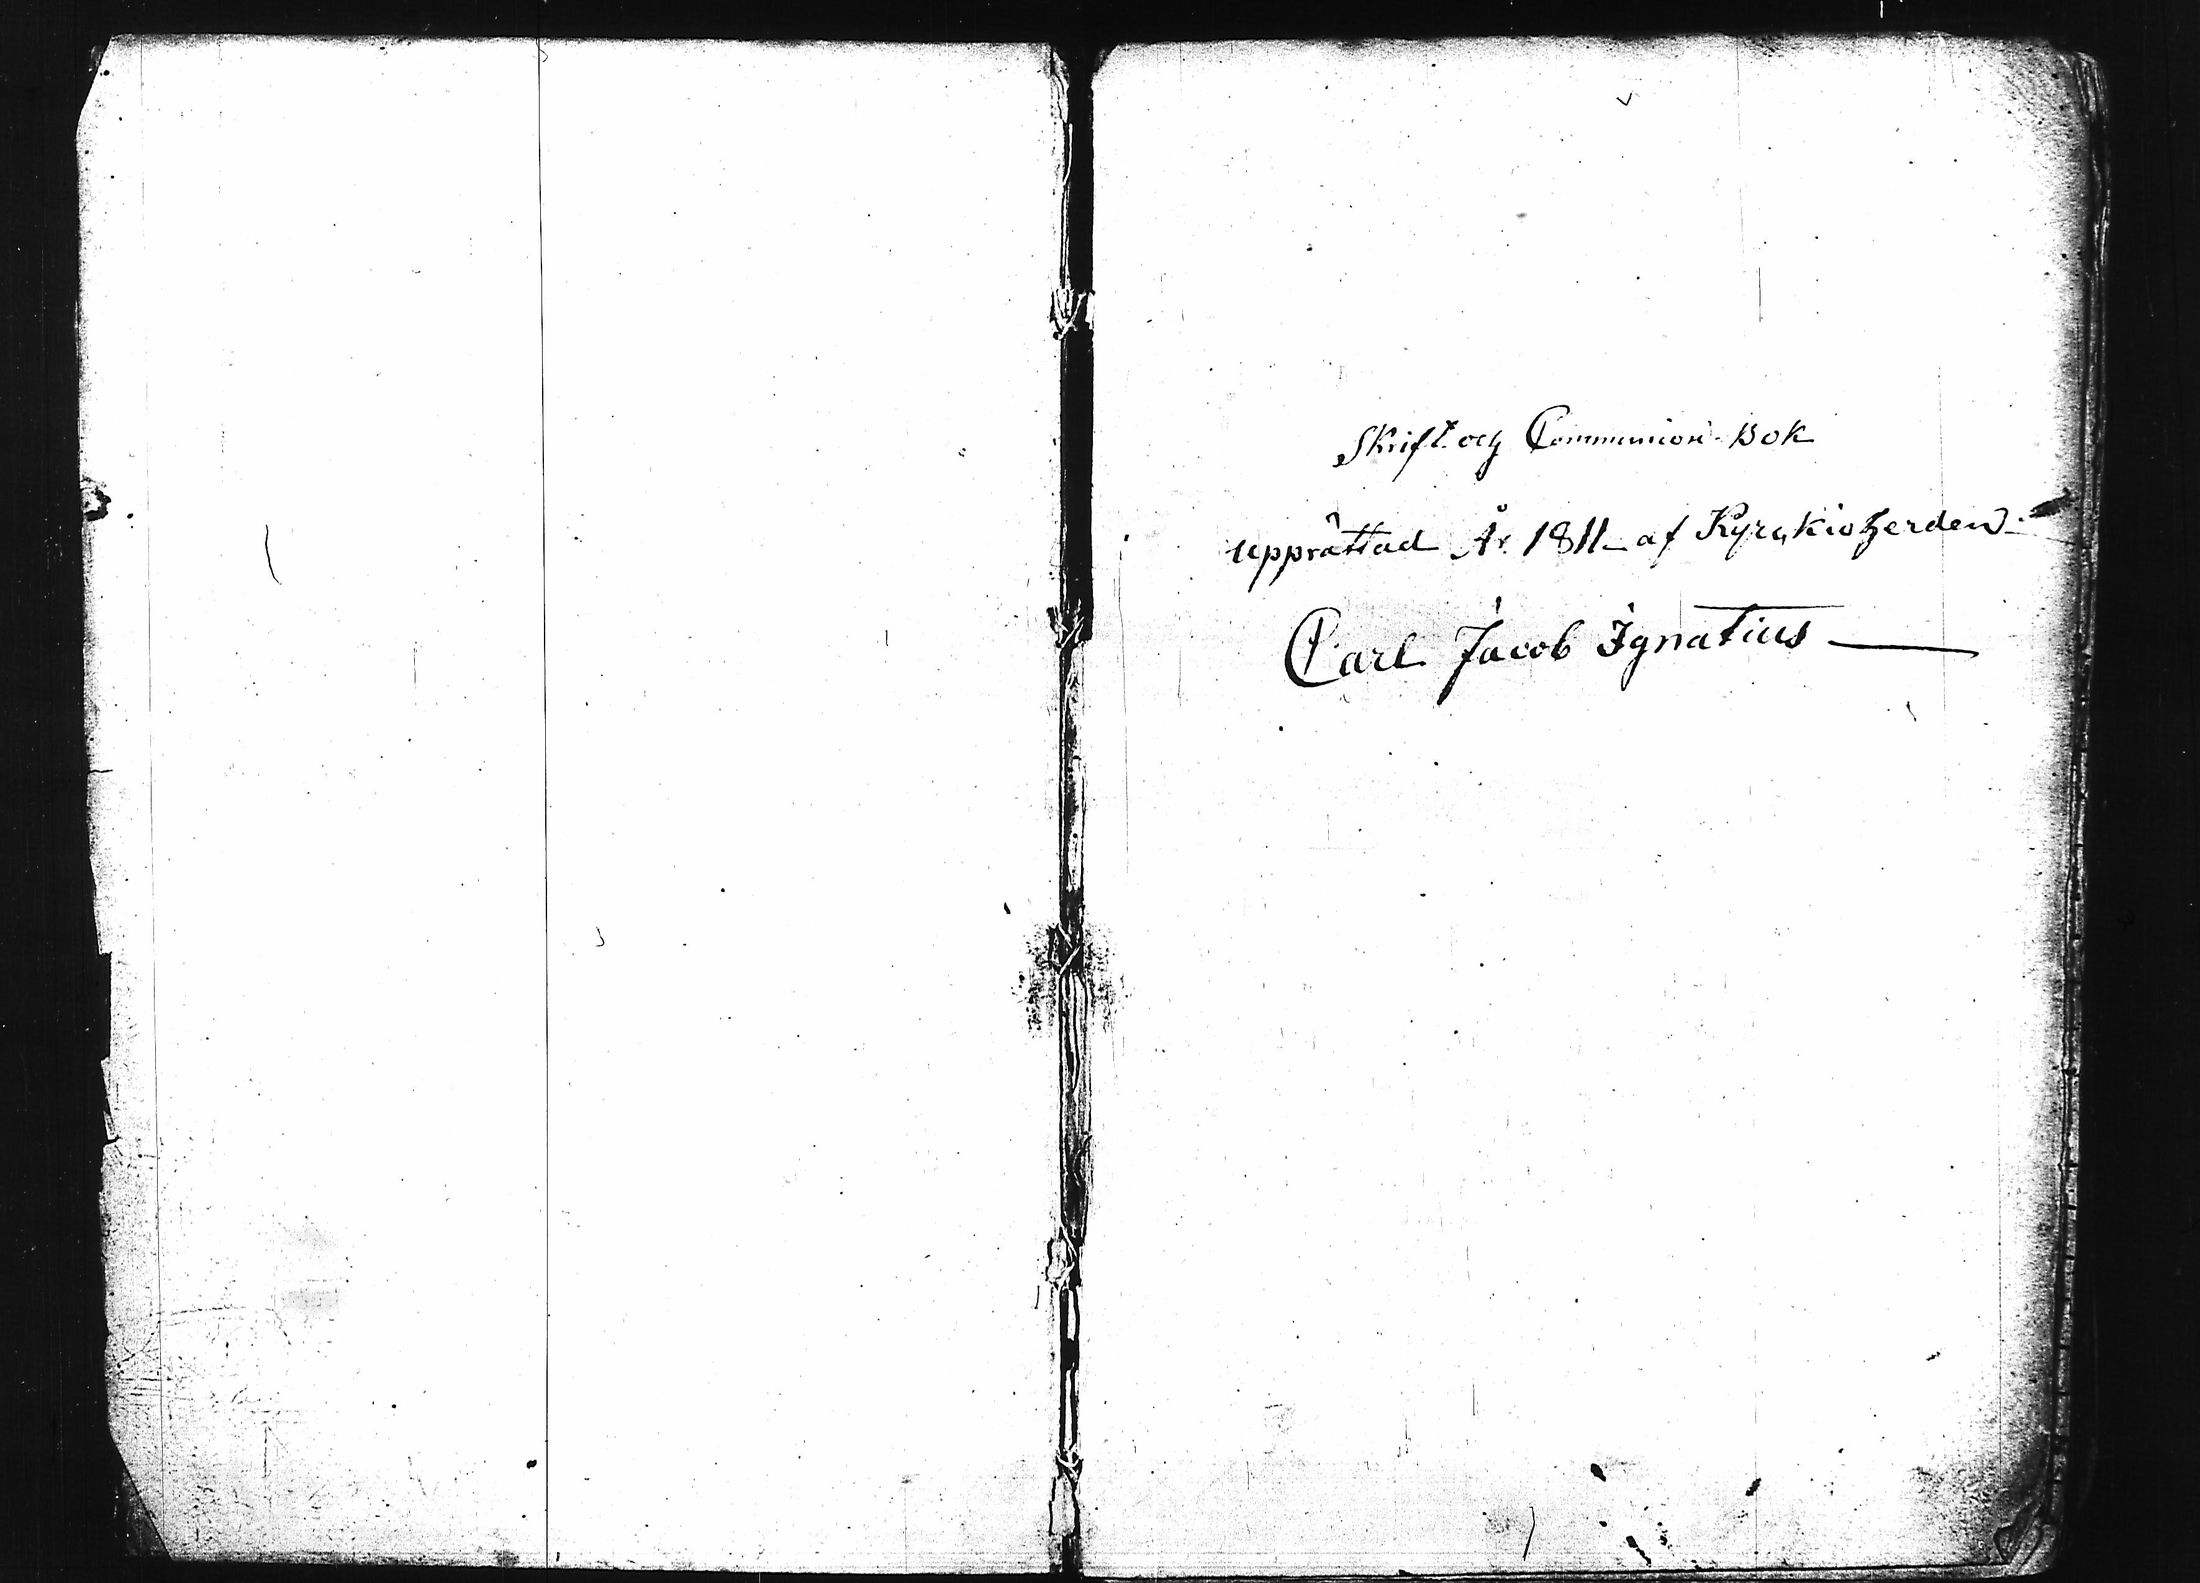 Skrift och Communion-Bok
upprättad År 1811 af Kyrckioherden
Carl Jacob Ignatius